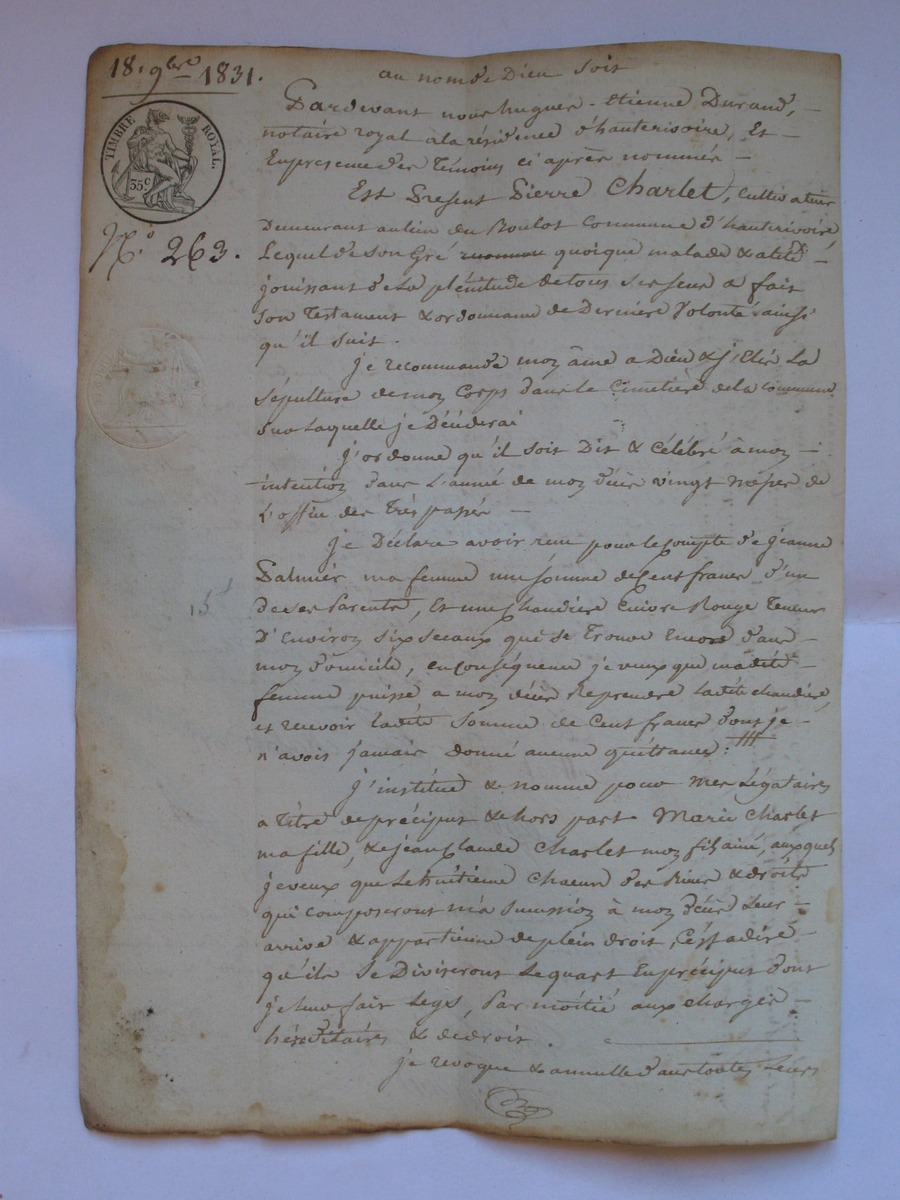 18. 9bre 1831.
TIMBRE ROYAL.
35 c
N.o 263.
15
au nom de Dieu soit
Pardevant nous hugues-Etienne Durand,
notaire royal à la résidence d'hauterivoire, Et
En presence des Témoins ci après nommés
Est Present Pierre Charlet, cultivateur
Demeurant au lieu du Boulot Commune d'hauterivoire,
Lequel de son Gré quoique malade & alité
jouissant de La plénitude de tous ses sens a fait
son Testament & ordonnance de Dernière Volonté ainsi
qu'il suit.
je recommande mon âme a Dieu & j'élis La
sépulture de mon Corps dans le Cimetière de la commune
sur Laquelle je Décéderai
J'ordonne qu'il soit Dit & Célébré à mon
intention dans L'année de mon décès vingt messes de
L'office des Trépassés
je Déclare avoir recu pour le compte de jeanne
Palmier ma femme une somme de Cent francs d'un
de ses Parents, Et une Chaudière Cuivre Rouge Teneur
D'Environ six seeaux qui se Trouve Encore dans
mon domicile, en conséquence je veux que madite
femme puisse a mon décès Reprendre Ladite chaudière,
et recevoir ladite somme de Cent francs dont je
n'avois jamais donné aucune quittance: ///
J'institue & nomme pour mes Légataires
a Titre de précipus & hors part Marie Charlet
ma fille, & jean Claude Charlet mon fils ainé, auxquels
je veux que Le huitieme Chacun des Biens & droits
qui composeront ma succession à mon décès Leur
arrive & appartienne de plein droit, c'est a dire
qu'ils se Diviseront Le quart En précipus dont
je leur fais Legs, Par moitié aux charges
héréditaires & de droit.
je revoque & annulle Dans toutes Leurs